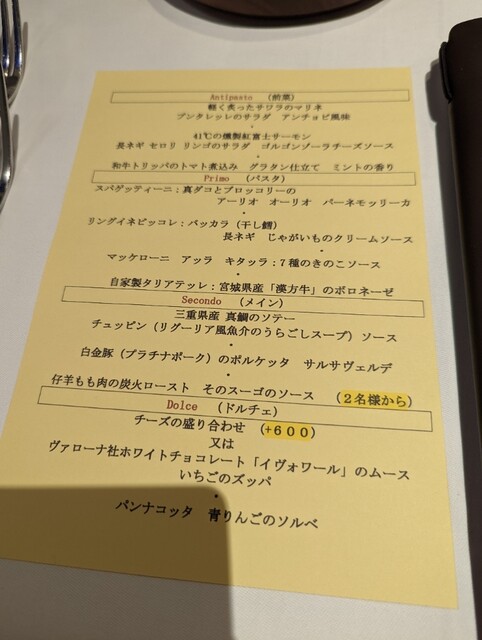 Antipasto （前菜）
軽く炙ったサワラのマリネ
プンタレッレのサラダ　アンチョビ風味
・
41℃の燻製紅富士サーモン
長ネギ セロリ リンゴのサラダ　ゴルゴンゾーラチーズソース
・
和牛トリッパのトマト煮込み　グラタン仕立て　ミントの香り
Primo （パスタ）
スパゲッティーニ：真ダコとブロッコリーの
アーリオ　オーリオ　パーネモッリーカ
・
リングイネピッコレ：バッカラ（干し鱈）
長ネギ　じゃがいものクリームソース
・
マッケローニ　アッラ　キタッラ：７種のきのこソース
・
自家製タリアテッレ：宮城県産「漢方牛」のボロネーゼ
Secondo （メイン）
三重県産 真鯛のソテー
チュッピン（リグーリア風魚介のうらごしスープ）ソース
・
白金豚（プラチナポーク）のポルケッタ　サルサヴェルデ
・
仔羊もも肉の炭火ロースト　そのスーゴのソース　（２名様から）
Dolce （ドルチェ）
チーズの盛り合わせ　（+６００）
又は
ヴァローナ社ホワイトチョコレート「イヴォワール」のムース
いちごのズッパ
・
パンナコッタ　青りんごのソルベ